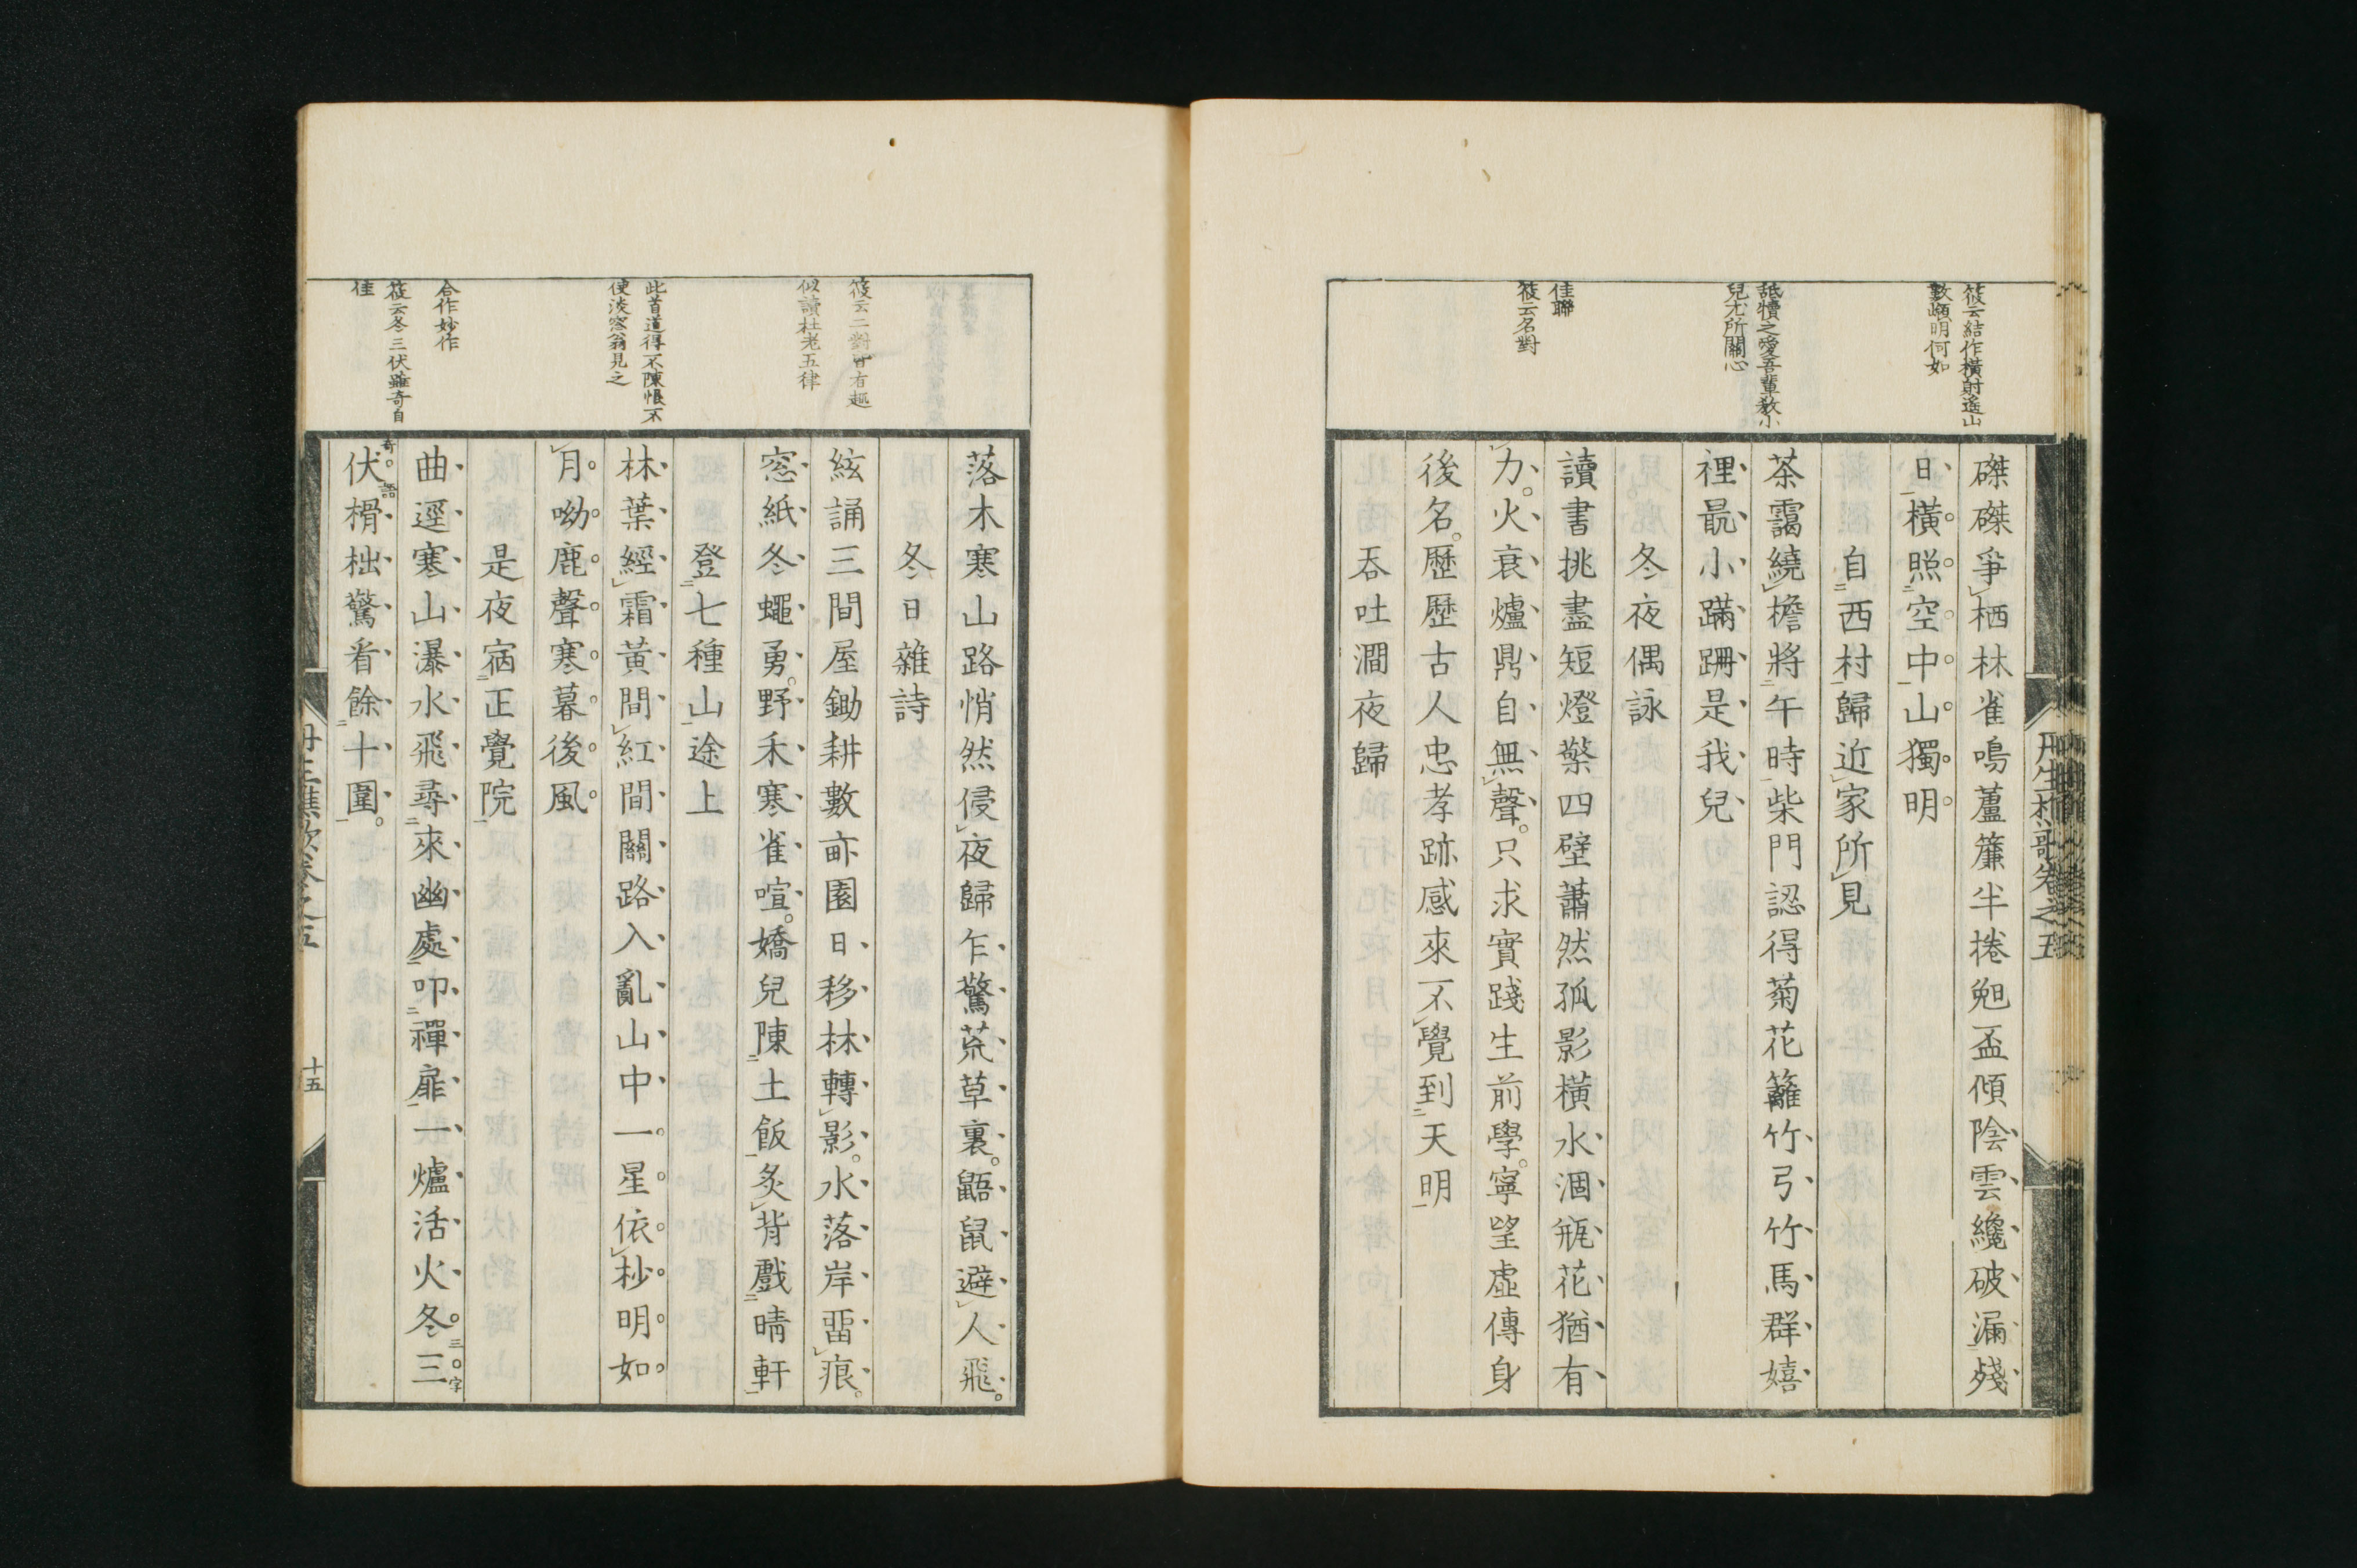 筱云結作橫射遙山
數巓明何如
舐犢之愛吾輩敎小
兒尤所關心
佳聯
筱云名對
磔磔爭栖林雀鳴蘆簾半捲兕盃傾陰雲纔破漏殘
日橫照空中山獨明
自西村歸近家所見
茶靄繞檐將午時柴門認得菊花籬竹弓竹馬群嬉
裡最小蹣跚是我兒
冬夜偶詠
讀書挑盡短燈檠四壁蕭然孤影橫水涸瓶花猶有
力火衰爐鼎自無聲只求實踐生前學寧望虛傳身
後名歷歷古人忠孝跡感來不覺到天明
吞吐澗夜歸
筱云二對皆有趣
似讀杜老五律
此首道得不陳恨不
使淡窓翁見之
合作妙作
筱云冬三伏雖奇自
佳
落木寒山路悄然侵夜歸乍驚荒草裏鼯鼠避人飛
冬日雜詩
絃誦三間屋鋤耕數畝園日移林轉影水落岸畱痕
窓紙冬蠅勇野禾寒雀喧嬌兒陳土飯炙背戲晴軒
登七種山途上
林葉經霜黃間紅間關路入亂山中一星依杪明如
月呦鹿聲寒暮後風
是夜宿正覺院
曲逕寒山瀑水飛尋來幽處叩禪扉一爐活火冬三
字
奇語
伏榾柮驚看餘十圍
十五